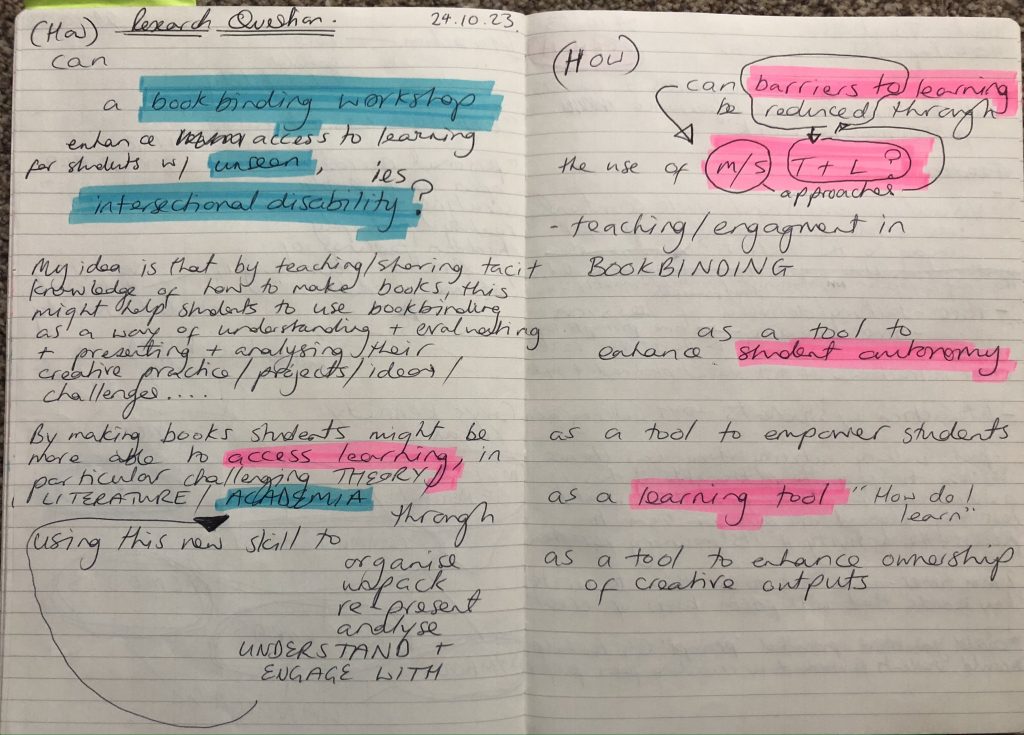 (How) Research Question. 24.10.23.
can
a bookbinding workshop
enhance access to learning
for students w/ unseen,
intersectional disability/ies?
My idea is that by teaching/sharing tacit
knowledge of how to make books, this
might help students to use bookbinding
as a way of understanding + evaluating
+ presenting + analysing their
creative practice/projects/ideas/
challenges....
By making books students might be
more able to access learning, in
particular challenging THEORY/
LITERATURE/ACADEMIA
through
using this new skill to
organise
unpack
re-present
analyse
UNDERSTAND +
ENGAGE WITH
(How)
can barriers to learning
be reduced through
the use of m/s T + L ?
approaches
- teaching/engagment in
BOOKBINDING
as a tool to
enhance student autonomy
as a tool to empower students
as a learning tool "How do I
learn"
as a tool to enhance ownership
of creative outputs